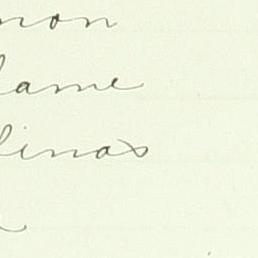 mon
lame
linas